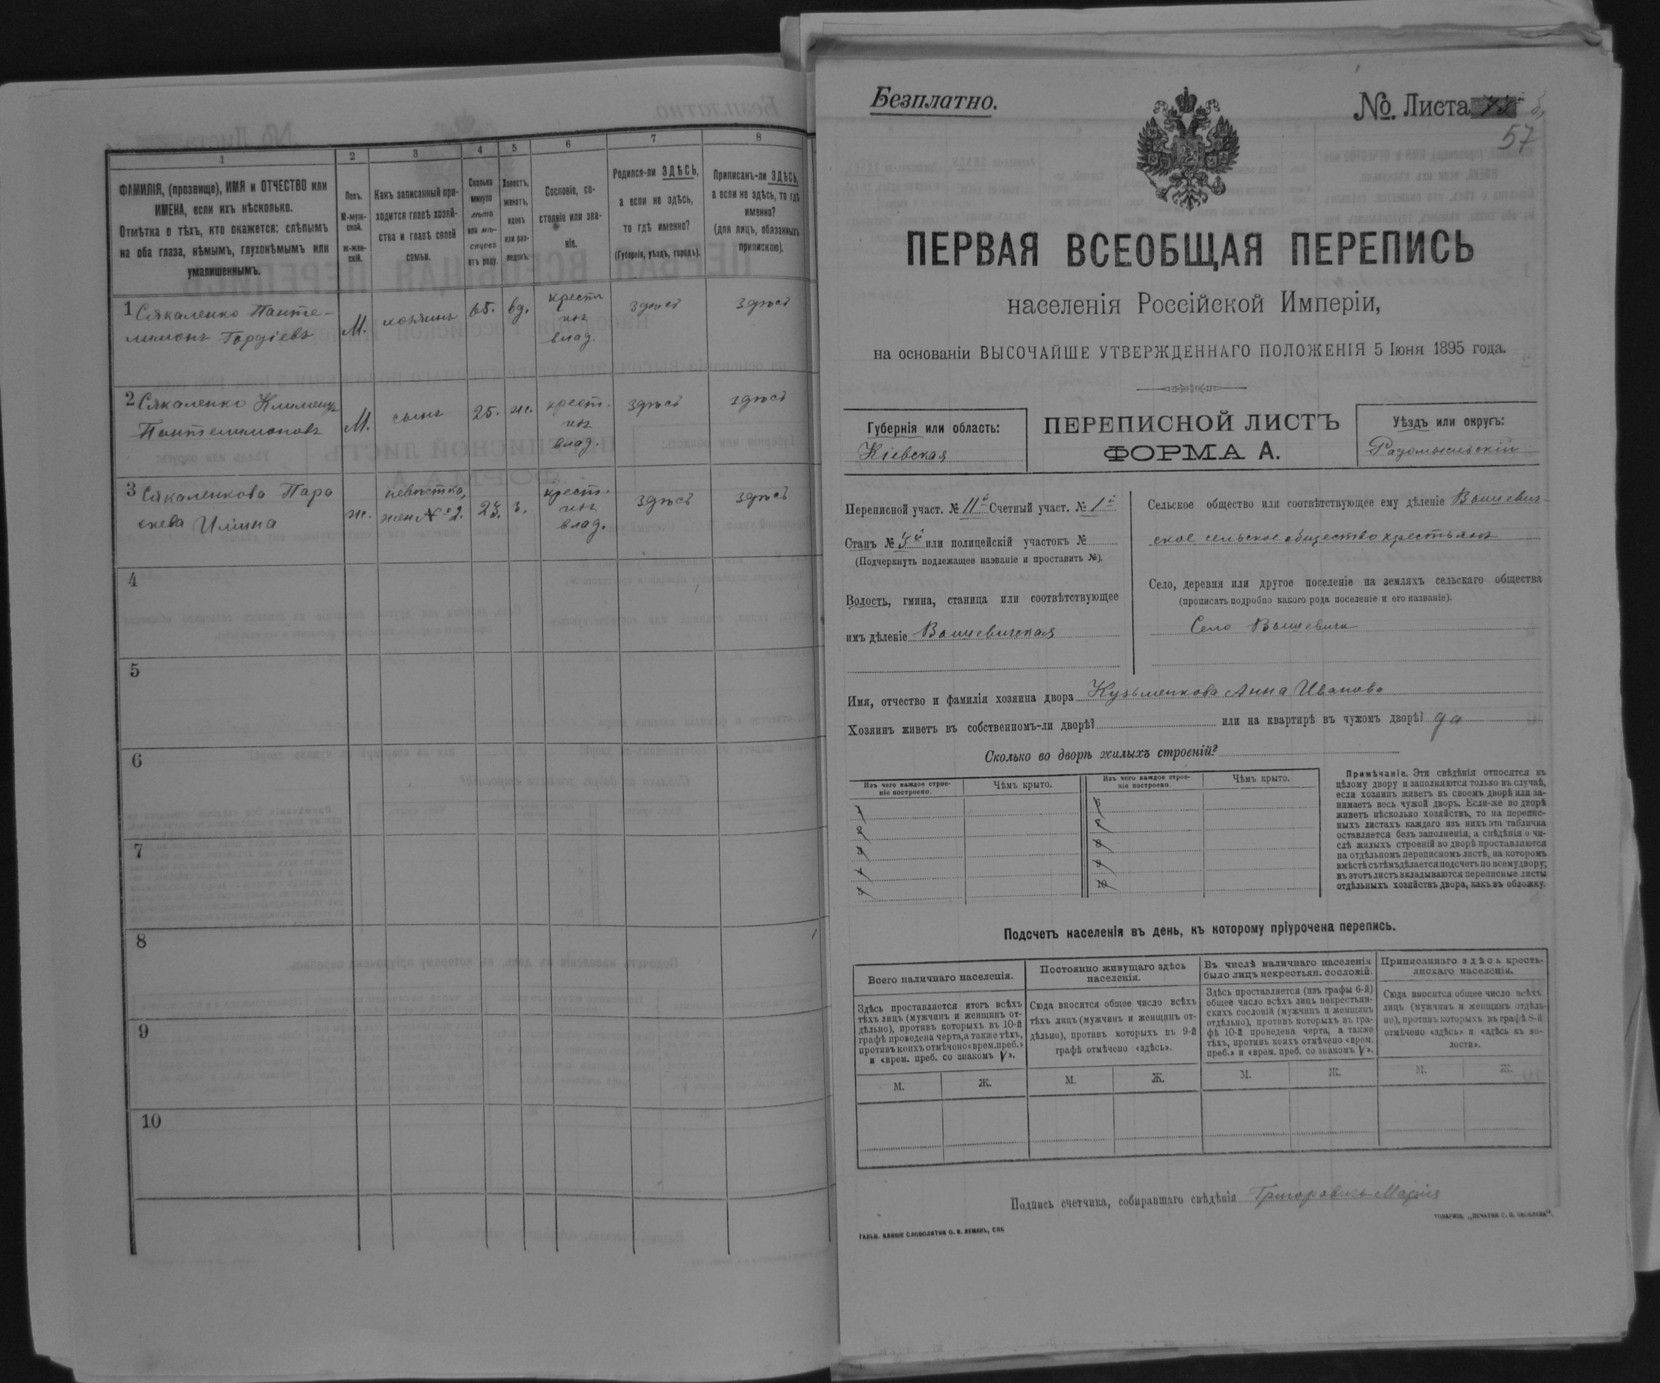 1
2
3
4
5
6
7
8
ФАМИЛІЯ, (прозвище), ИМЯ и ОТЧЕСТВО или
ИМЕНА, если ихъ нѣсколько.
Отмѣтка о тѣхъ, кто окажется: слѣпымъ
на оба глаза, нѣмымъ, глухонѣмымъ или
умалишеннымъ.
Полъ.
М-муж-
ской.
ж-жен-
скій.
Какъ записанный при-
ходится главѣ хозяй-
ства и главѣ своей
семьи.
Сколько
минуло
лѣтъ
или мѣ-
сяцевъ
отъ роду.
Холостъ,
женатъ,
вдовъ
или раз-
веденъ.
Сословіе, со-
стояніе или зва-
ніе.
Родился-ли ЗДѢСЬ,
а если не здѣсь,
то гдѣ именно?
(Губернія, уѣздъ, городъ).
Приписанъ-ли ЗДѢСЬ,
а если не здѣсь, то гдѣ
именно?
(для лицъ, обязанныхъ
припискою).
1 Сякаленко Панте-
лимонъ Гордіевъ
М.
хозяинъ
65.
вд.
крестн
изъ
влад.
здѣсь
здѣсь
2 Сякаленко
Пантелимоновъ
М.
сынъ
25.
ж.
крест.
изъ
влад.
здѣсь
здѣсь
3 Сякаленкова Пара
скева
ж.
невѣстка,
жен №2.
з.
крест.
изъ
влад.
здѣсь
здѣсь
4
5
6
7
8
9
10
Безплатно.
№. Листа
57
ПЕРВАЯ ВСЕОБЩАЯ ПЕРЕПИСЬ
населенія Россійской Имперіи,
на основаніи ВЫСОЧАЙШЕ УТВЕРЖДЕННАГО ПОЛОЖЕНІЯ 5 Іюня 1895 года.
Губернія или область:
Кіевская
ПЕРЕПИСНОЙ ЛИСТЪ
ФОРМА А.
Уѣздъ или округъ:
Радомысльскій
Переписной участ. № 11й Счетный участ. № 1й
Станъ № или полицейскій участокъ №
(Подчеркнуть подлежащее названіе и проставить №).
Волость, гмина, станица или соотвѣтствующее
имъ дѣленіе Вышевичская
Сельское общество или соотвѣтствующее ему дѣленіе Вышевич-
ское сельское общество крестьянъ
Село, деревня или другое поселеніе на земляхъ сельскаго общества
(прописать подробно какого рода поселеніе и его названіе).
Село Вышевичи
Имя, отчество и фамилія хозяина двора Кузьменкова Анна Иванова
Хозяинъ живетъ въ собственномъ-ли дворѣ? или на квартирѣ въ чужомъ дворѣ? да
Сколько во дворѣ жилыхъ строеній?
Изъ чего каждое строе-
ніе построено.
Чѣмъ крыто.
Изъ чего каждое строе-
ніе построено.
Чѣмъ крыто.
10
Примѣчаніе. Эти свѣдѣнія относятся къ
цѣлому двору и заполняются только въ случаѣ,
если хозяинъ живетъ въ своемъ дворѣ или за-
нимаетъ весь чужой дворъ. Если-же во дворѣ
живетъ нѣсколько хозяйствъ, то на перепис-
ныхъ листахъ каждаго изъ нихъ эта табличка
оставляется безъ заполненія, а свѣдѣнія о чи-
слѣ жилыхъ строеній во дворѣ проставляются
на отдѣльномъ переписномъ листѣ, на которомъ
вмѣстѣ съ тѣмъ дѣлается подсчетъ по всему двору;
въ этотъ листъ вкладываются переписные листы
отдѣльныхъ хозяйствъ двора, какъ въ обложку.
Подсчетъ населенія въ день, къ которому пріурочена перепись.
Всего наличнаго населенія.
Постоянно живущаго здѣсь
населенія.
Въ числѣ наличнаго населенія
было лицъ некрестьян. сословій.
Приписаннаго здѣсь кресть-
янскаго населенія.
Здѣсь проставляется итогъ всѣхъ
тѣхъ лицъ (мужчинъ и женщинъ от-
дѣльно), противъ которыхъ въ 10-й
графѣ проведена черта, а также тѣхъ,
противъ коихъ отмѣчено «врем. преб.»
и «врем. преб. со знакомъ V».
Сюда вносится общее число всѣхъ
тѣхъ лицъ (мужчинъ и женщинъ от-
дѣльно), противъ которыхъ въ 9-й
графѣ отмѣчено «здѣсь».
Здѣсь проставляется (изъ графы 6-й)
общее число всѣхъ лицъ некрестьян-
скихъ сословій (мужчинъ и женщинъ
отдѣльно), противъ которыхъ въ гра-
фѣ 10-й проведена черта, а также
тѣхъ, противъ коихъ отмѣчено «врем.
преб.» и «врем. преб. со знакомъ V».
Сюда вносится общее число всѣхъ
лицъ (мужчинъ и женщинъ отдѣль-
но), противъ которыхъ въ графѣ 8-й
отмѣчено «здѣсь» и «здѣсь въ во-
лости».
М.
Ж.
М.
Ж.
М.
Ж.
М.
Ж.
Подпись счетчика, собиравшаго свѣдѣнія